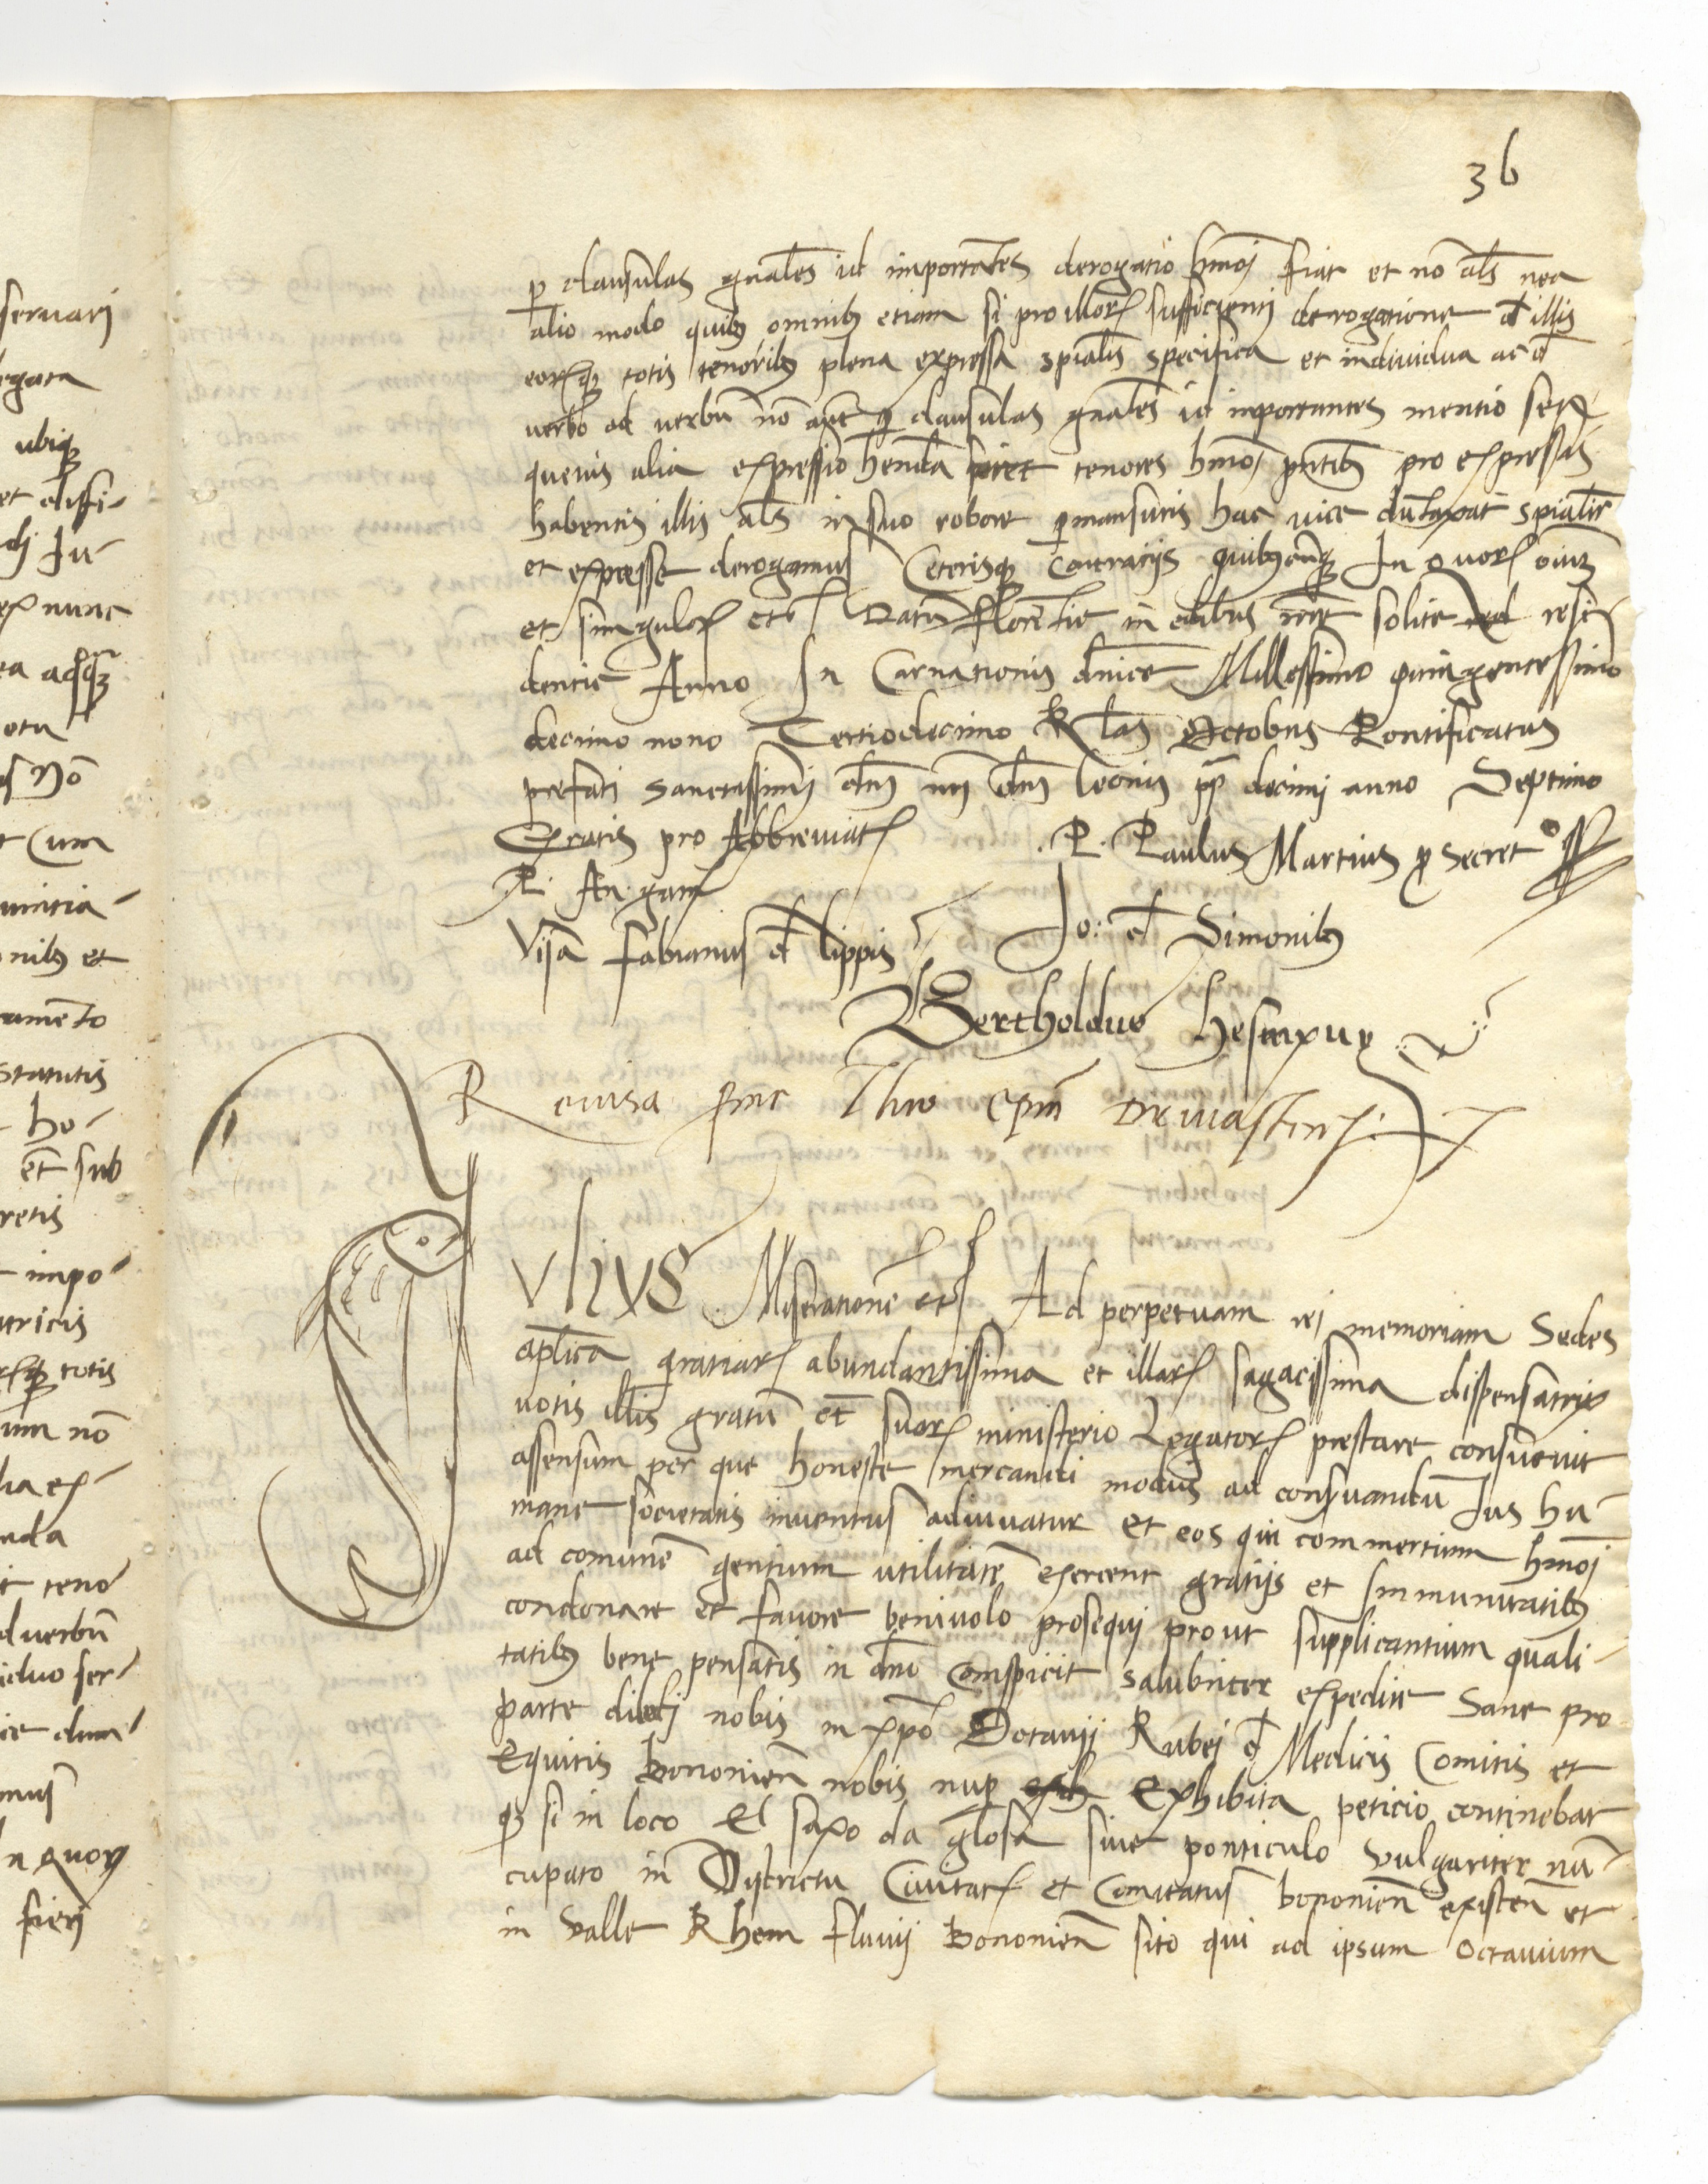 36
p clausulas gnales id importates derogatio hmoi fiat et no als nea
alio modo quibus omnibus etiam si pro illor sufficienti derogatione d illis
eorque totis tenoribus plena expressa spialis specifica et individua ac d
verbo ad verbu no aute p clausulas gnales id importantes mentio seu
quevis alia expressio henda tenores hmoi pntibus pro expressis
habentis illis als in suo robore pmansuris hac vice dutaxat spialiter
et expresse derogamus Ceterisque contrarijs quibuscunque In quor oium
et singulor etc Datu florentie in edibus nre solite resi
dentie Anno In Carnationis dnice Millessimo quingentessimo
decimo nono Tertiodecimo Klas Octobris Pontificatus
prefati sanctissimi dni nri dni leonis pp decimi anno Septimo
Gratis pro Abbreviat
P. Paulus Martius p secret
R. An. gam
Visa fabianus d lippis
Jo: d Simonibus
Bertholdus
Revisa p me epm Drivasten
Julius Miseratione etc Ad perpetuam rei memoriam Sedes
aplica gratiar abundantissima et illar sagacissima dispensatrix
votis illis gratu et suor ministerio Legator prestare consuevit
assensum per que honeste mercandi modus ad conservandu Jus hu
mane societatis inventus adiuvatur et eos qui commertium hmoi
ad comune gentium utilitate exercent gratijs et Immunitatibus
condonare et favore benivolo prosequi prout supplicantium quali
tatibus bene pensatis in dno Conspicit salubriter expedire Sane pro
parte dilecti nobis in xpo Octavij Rubei d Medicis Comitis et
Equitis Bononien nobis nup Exhibita peticio continebat
q si in loco El saxo da glosa sive ponticulo vulgariter nu
cupato in Districtu Civitat et Comitatus bononien existen et
in valle Rheni fluvij Bononien sito qui ad ipsum Octavium
servari
egata
ubique
et
Ju
ex nunc
ea
No
Cum
nibus et
amento
statutis
ho
et sub
retis
impo
tricis
totis
um no
lia ex
nda
teno
d verbu
iduo ser
dum
n quor
fieri